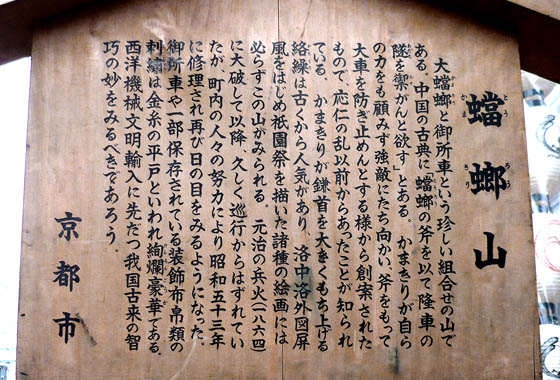 蟷螂山
とう
ろう
大蟷螂と御所車という珍しい組合せの山で
ある。中国の古典に「蟷螂の斧を以て隆車の
隧を禦がんと欲す」とある。かまきりが自ら
の力をも顧みず強敵にたち向かい斧をもって
大車を防ぎ止めんとする様から創案された
もので、応仁の乱以前からあったことが知られ
ている。かまきりが鎌首を大きくもち上げる
絡繰は古くから人気があり、洛中洛外図屏
風をはじめ祇園祭を描いた諸種の絵画には
必らずこの山がみられる。元治の兵火(一八六四)
に大破して以降、久しく巡行からはずれてい
たが、町内の人々の努力により昭和五十三年
に修理され再び日の目をみるようになった。
御所車や一部保存されている装飾布帛類の
刺繍は金糸の平戸といわれ絢爛豪華である。
西洋機械文明輸入に先だつ我国古来の智
巧の妙をみるべきであろう。
京都市